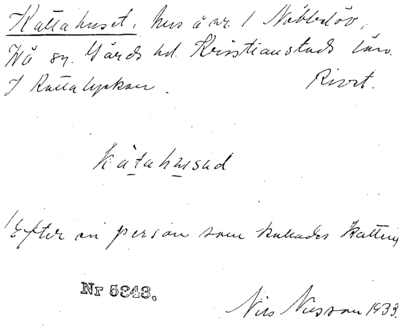 Kattahuset, hus å nr. 1 Nöbbelöv,
Vä sn. Gärds hd. Kristianstads län.
I Kattalyckan. Rivet.
kàtahusəd
Efter en person som kallades Katten
Nr 5343.
Nils Nilsson 1933.